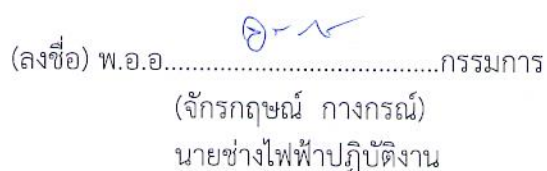 (ลงชื่อ) พ.อ.อ........................................กรรมการ
(จักรกฤษณ์ กางกรณ์)
นายช่างไฟฟ้าปฏิบัติงาน